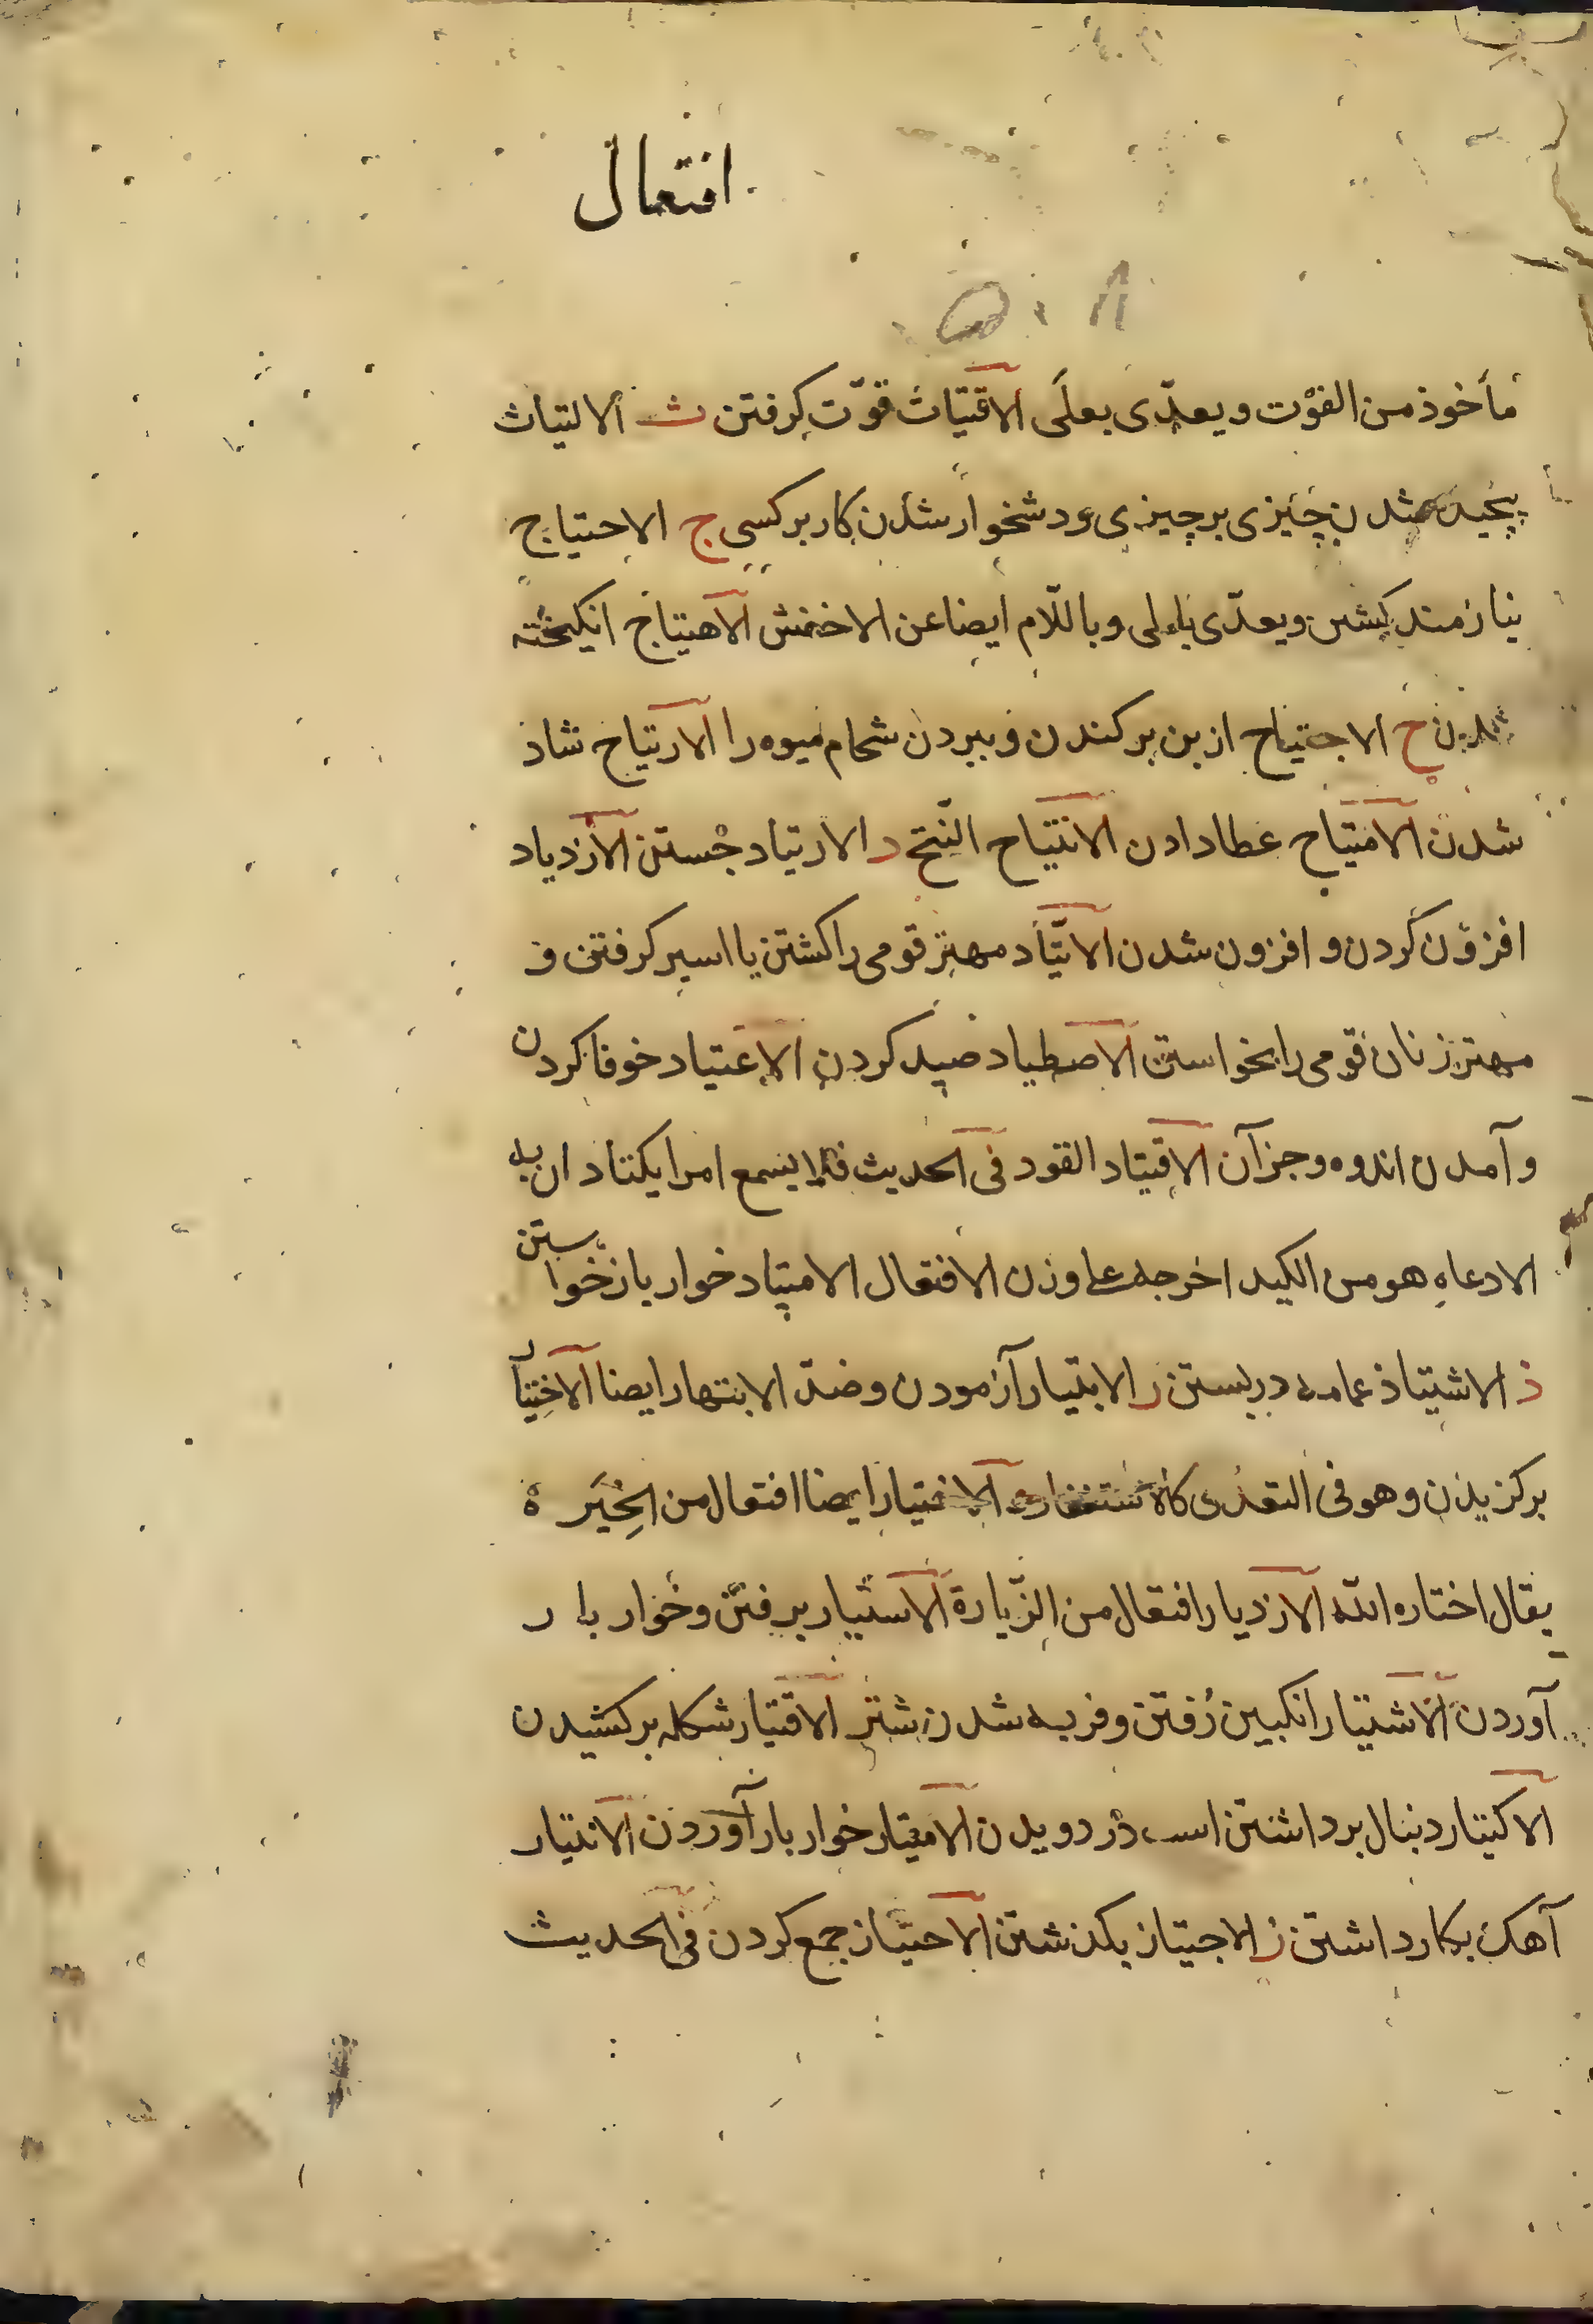 افتعال
مأخوذ من الفوْت ويعدّى بعلَى الاقتيات قوّت كرفتن ث الالتياث
شدن چيزى بر چيزى ودشخوار شدن كار بر كسى ج الاحتياج
نيازمند كشتن ويعدّى بالى وباللّام ايضا عن الاخفش الاهتياج انكيخته
شدن ح الاجتياح از بن بر كندن و ببردن شحام ميوه را الارتياح شاذ
شدن الامتياح عطا دادن الانتياح النتح د الارتياد جُستن الازدياد
افزون كَردن و افزون شدن الاتياد مهتر قومى را كشتن يا اسير كرفتن و
مهتر زنان قومى را بخواستن الاصطياد صيد كردن الاعتياد خوفا كردن
و آمدن اندوه وجز آن الاقتياد القود فى الحديث فلا يسمع امرا يكتاد ان به
الادعاهِ هو من الكيد اخرجه على وزن الافتعال الامتياد خوار بار خواستن
ذ الاشتياذ عمامه در بستن ر الابتيار آزمودن وضدّ الابتهار ايضا الاختيار
بركزيدن وهو فى التعدى كالاستغفار و الاختيار ايضا افتعال من الخِيَرة
يقال اختاره الله الازديار افتعال من الزّيارة الاستيار برفتن وخوار بار
آوردن الاشتيار انكبين رُفتن وفربه شدن شتر الاقتيار شكله بر كشيدن
الاكتيار دنبال برداشتن اسب در دويدن الامتيار خوار بار آوردن الانتيار
آهك بكار داشتن ز الاجتياز بكذشتن الاحتياز جمع كردن فى الحديث